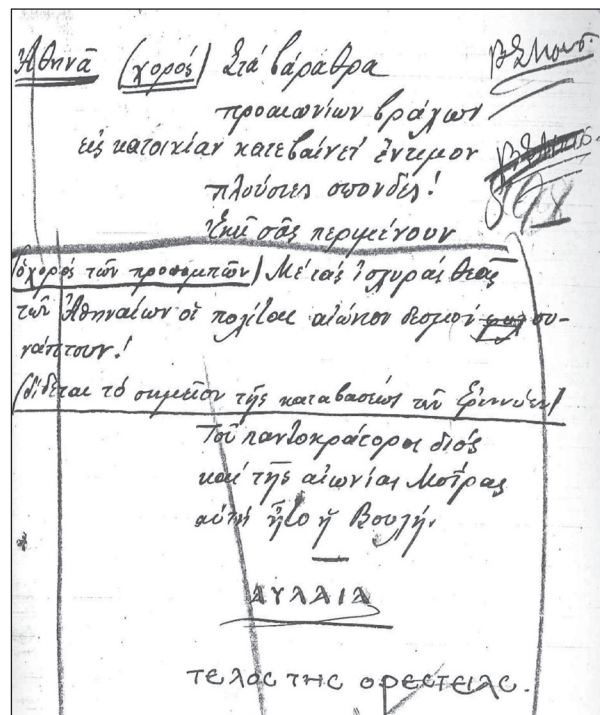 Ἀθηνᾶ (χορός) Στά βάραθρα
προαιωνίων βράχων
εἰς κατοικίαν κατεβαίνετ' ἔντιμον
πλούσιες σπονδές!
Ἐκεῖ σᾶς περιμένουν
(ὁ χορός τῶν προπομπῶν) Μέ τάς ἰσχυράς θεάς
τῶν Ἀθηναίων οἱ πολῖται αἰώνιον δεσμόν συ-
νάπτουν!
(δίδεται τό σημεῖον τῆς καταβάσεως τῶν Ἐριννύων)
Τοῦ παντοκράτορος Διός
καί τῆς αἰωνίας Μοίρας
αὐτή ἦτο ἡ Βουλή.
ΑΥΛΑΙΑ
ΤΕΛΟΣ ΤΗΣ ΟΡΕΣΤΕΙΑΣ.